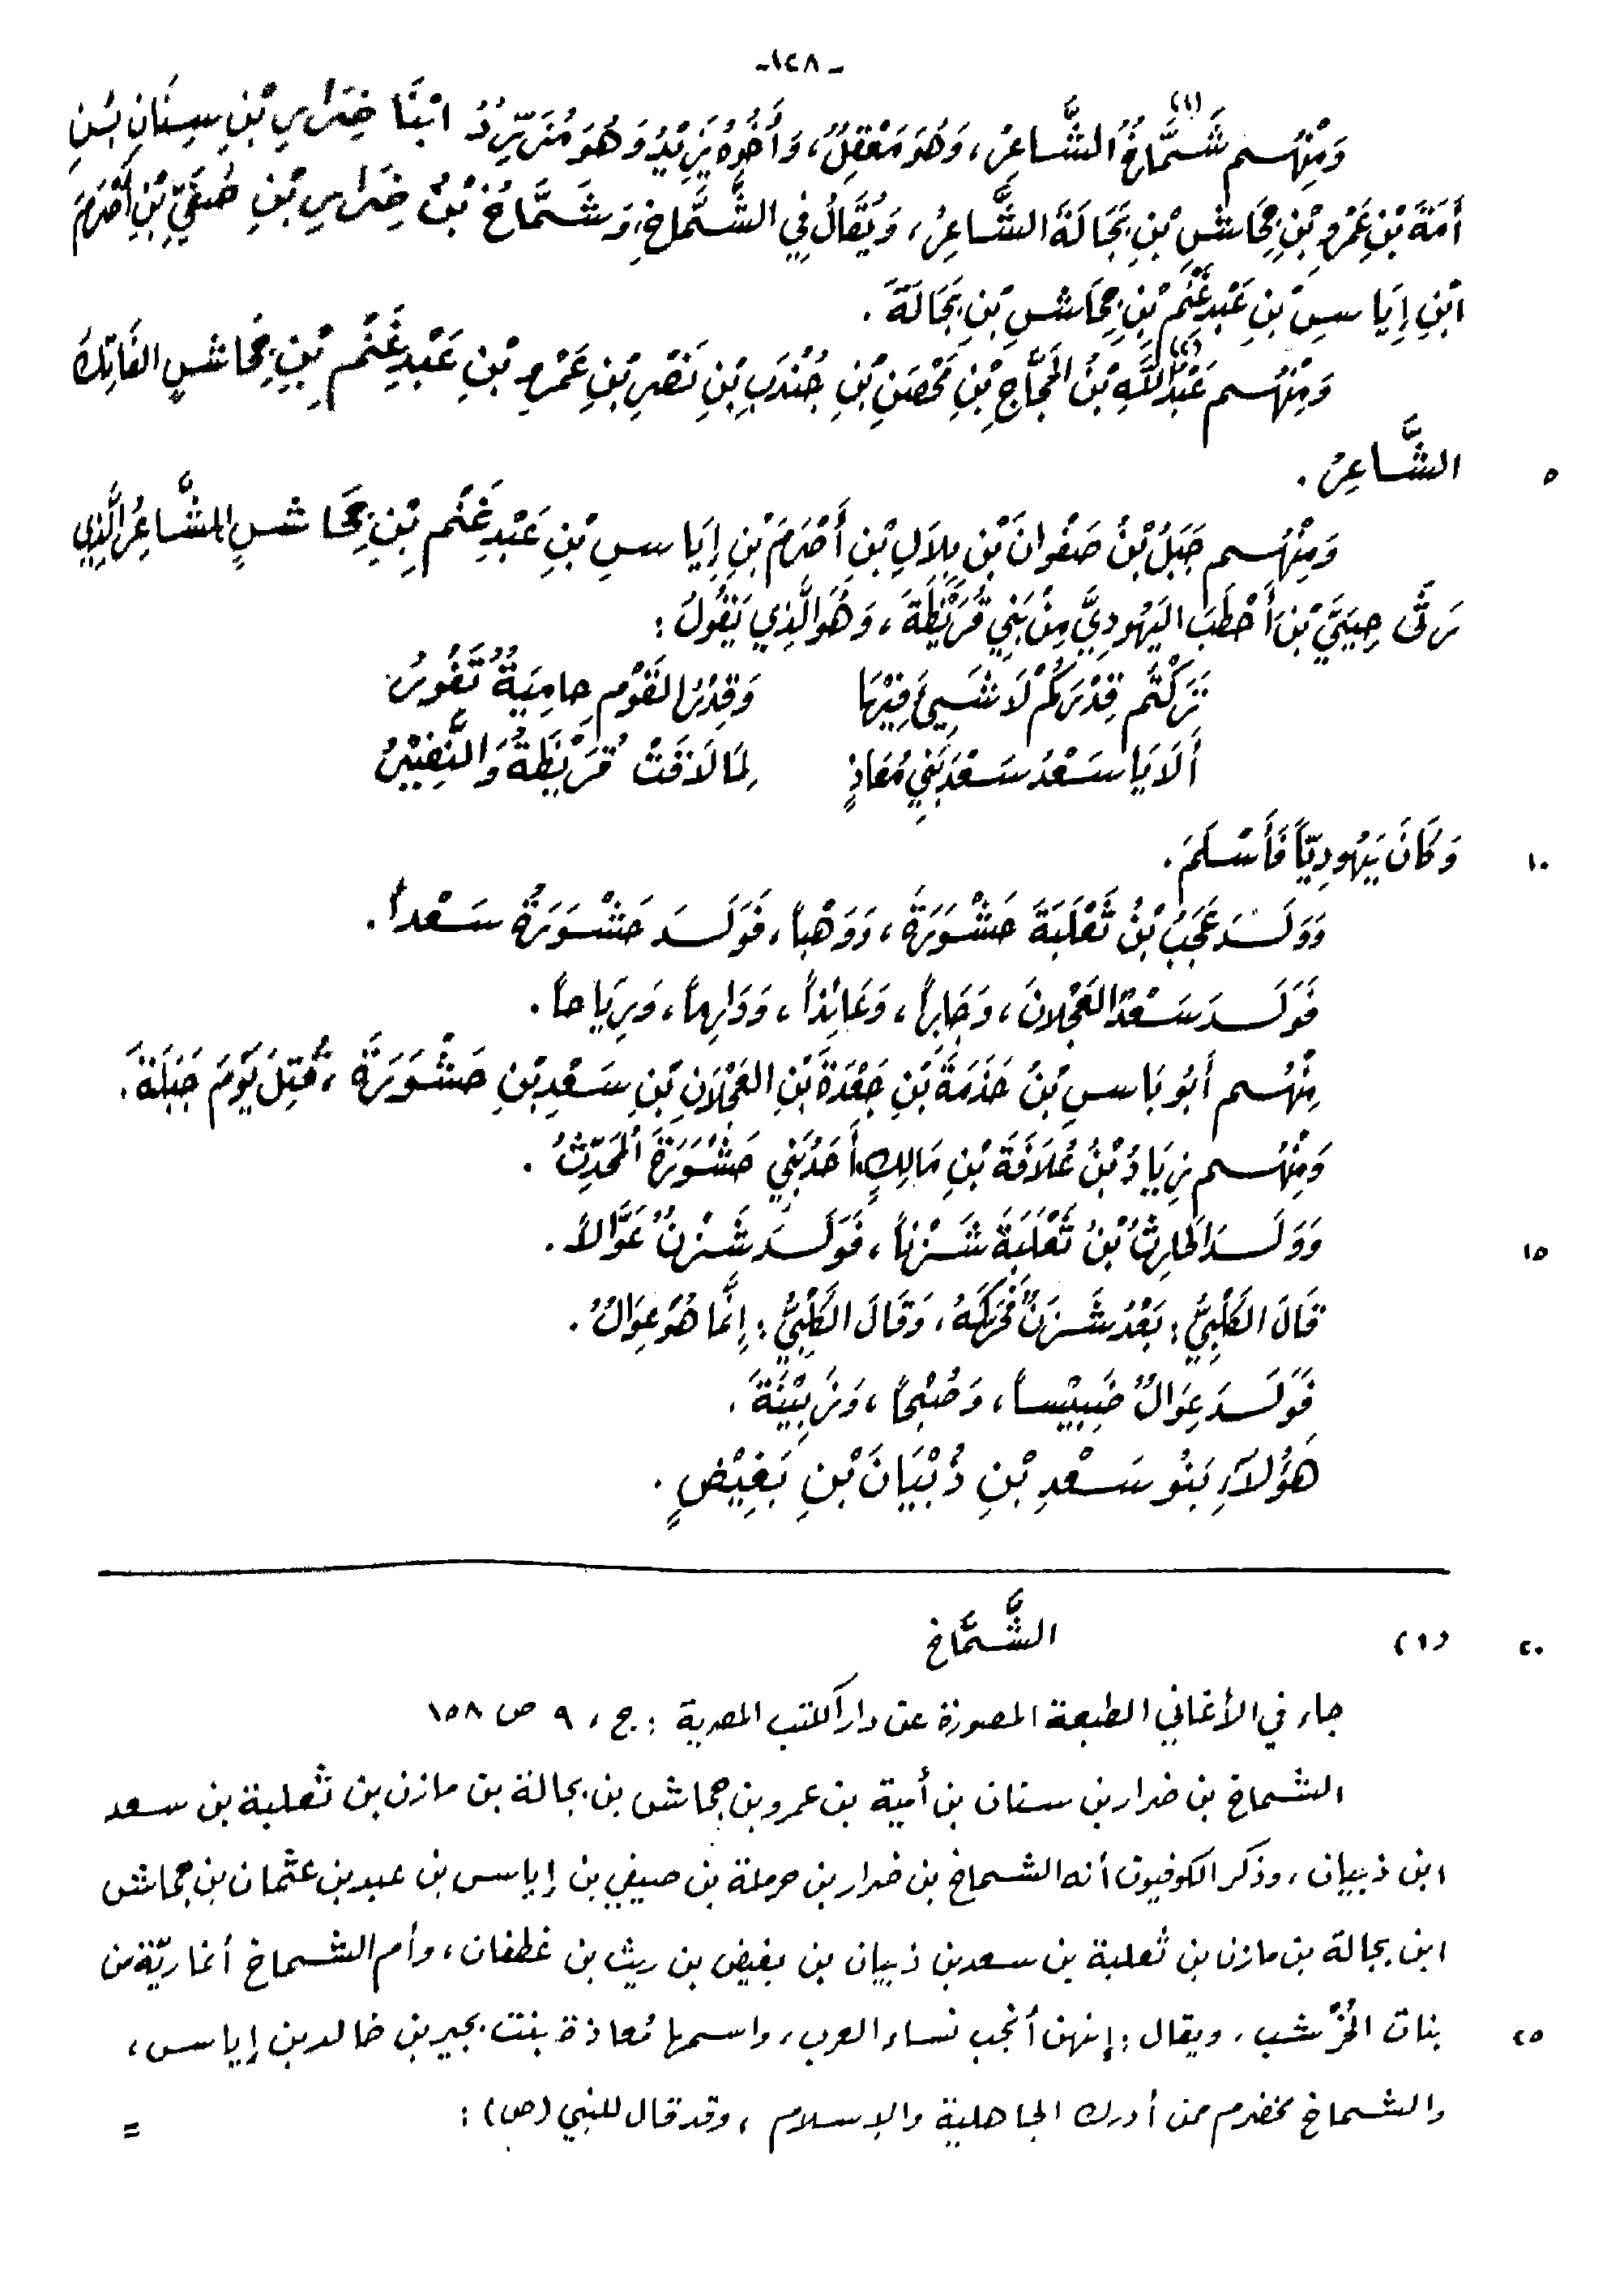 -١٤٨-
وَمِنْهُم شَمَّاخُ(١) الشَّاعِرُ، وَهُوَ مَعْقِلٌ، وَأَخُوهُ يَزِيْدُ وَهُوَ مُزَرِّدُ ابْنَا ضِرَارِ بْنِ سِنَانِ بْنِ
أَمَةَ بْنِ عَمْرِو بْنِ جِحَاشِ بْنِ بَجَالَةَ الشَّاعِرُ، وَيُقَالُ فِي الشَّمَّاخِ، وَشَمَّاخُ بْنُ ضِرَارِ بْنِ صَيْفِيِّ بْنِ أَصْرَمَ
ابْنِ إِيَاسِ بْنِ عَبْدِ غَنْمِ بْنِ جِحَاشِ بْنِ بَجَالَةَ.
وَمِنْهُم عَبْدُ اللَّهِ(٢) بْنُ الحَجَّاجِ بْنِ مِحْصَنِ بْنِ جُنْدَبِ بْنِ نَصْرِ بْنِ عَمْرِو بْنِ عَبْدِ غَنْمِ بْنِ جِحَاشٍ الفَاتِكُ
الشَّاعِرُ. ٥
وَمِنْهُم جَبَلُ بْنُ صَفْوَانَ بْنِ بِلاَلِ بْنِ أَصْرَمَ بْنِ إِيَاسِ بْنِ عَبْدِ غَنْمِ بْنِ جِحَاشٍ الشَّاعِرُ الَّذِي
رَثَى حِيَيَّ بْنَ أَخْطَبَ اليَهُودِيَّ مِنْ بَنِي قُرَيْظَةَ، وَهُوَ الَّذِي يَقُولُ:
تَرَكْتُم قِدْرَكُمْ لَا شَيْءَ فِيْهَا وَقِدْرُ القَوْمِ حَامِيَةٌ تَفُورُ
أَلَا يَا سَعْدُ سَعْدَ بَنِي مُعَاذٍ لِمَا لَاقَتْ قُرَيْظَةُ وَالنَّضِيْرُ
وَكَانَ يَهُودِيّاً فَأَسْلَمَ. ١٠
وَوَلَدَ عَجَبُ بْنُ ثَعْلَبَةَ حَشْوَرَةَ، وَوَهْباً، فَوَلَدَ حَشْوَرَةُ سَعْداً.
فَوَلَدَ سَعْدٌ العَجْلانَ، وَجَابِراً، وَعَائِذاً، وَوَاهِماً، وَرِيَاحاً.
مِنْهُم أَبُو يَاسِ بْنُ حَذَمَةَ بْنِ جَعْدَةَ بْنِ العَجْلَانِ بْنِ سَعْدِ بْنِ حَشْوَرَةَ، قُتِلَ يَوْمَ جَبَلَةَ.
وَمِنْهُم زِيَادُ بْنُ عُلَاقَةَ بْنِ مَالِكٍ أَحَدُ بَنِي حَشْوَرَةَ المُحَدِّثُ.
وَوَلَدَ الحَارِثُ بْنُ ثَعْلَبَةَ شَزْناً، فَوَلَدَ شَزْنٌ عَوَّالاً. ١٥
قَالَ الكَلْبِيُّ: بَعْدُ شَزَنٌ فَحَرَّكَهُ، وَقَالَ الكَلْبِيُّ: إِنَّمَا هُوَ عِوَالٌ.
فَوَلَدَ عِوَالٌ خَبِيْساً، وَصُبْحاً، وَزَبِيْنَةَ.
هَؤُلَاءِ بَنُو سَعْدِ بْنِ ذُبْيَانَ بْنِ بَغِيْضٍ.
(١) الشَّمَّاخ ٢٠
جاء في الأغاني الطبعة المصورة عن دار الكتب المصرية: ج، ٩ ص ١٥٨
الشماخ بن ضرار بن سنان بن أمية بن عمرو بن جحاش بن بجالة بن مازن بن ثعلبة بن سعد
ابن ذبيان، وذكر الكوفيون أنه الشماخ بن ضرار بن حرملة بن صيفي بن إياس بن عبد بن عثمان بن جحاش
ابن بجالة بن مازن بن ثعلبة بن سعد بن ذبيان بن بغيض بن ريث بن غطفان، وأم الشماخ أنماريّة من
بنات الخُرْشب، ويقال: إنهن أنجب نساء العرب، واسمها مُعاذة بنت بجير بن خالد بن إياس، ٢٥
والشماخ مخضرم ممن أدرك الجاهلية والإسلام، وقد قال للنبي (ص): =